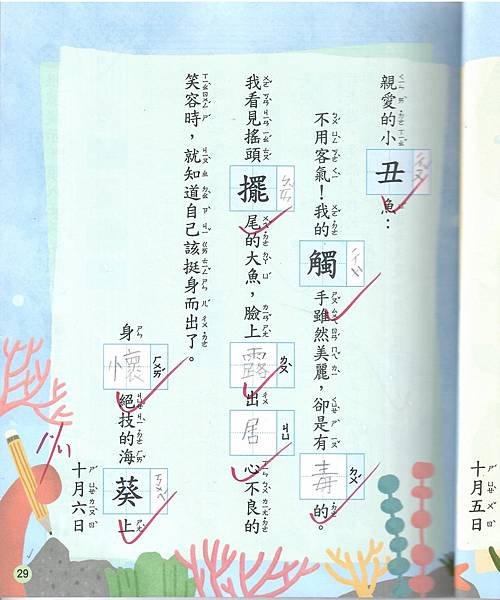 十月五日
親愛的小丑魚：
不用客氣！我的觸手雖然美麗，卻是有毒的。
我看見搖頭擺尾的大魚，臉上露出居心不良的
笑容時，就知道自己該挺身而出了。
身懷絕技的海葵上
十月六日
29